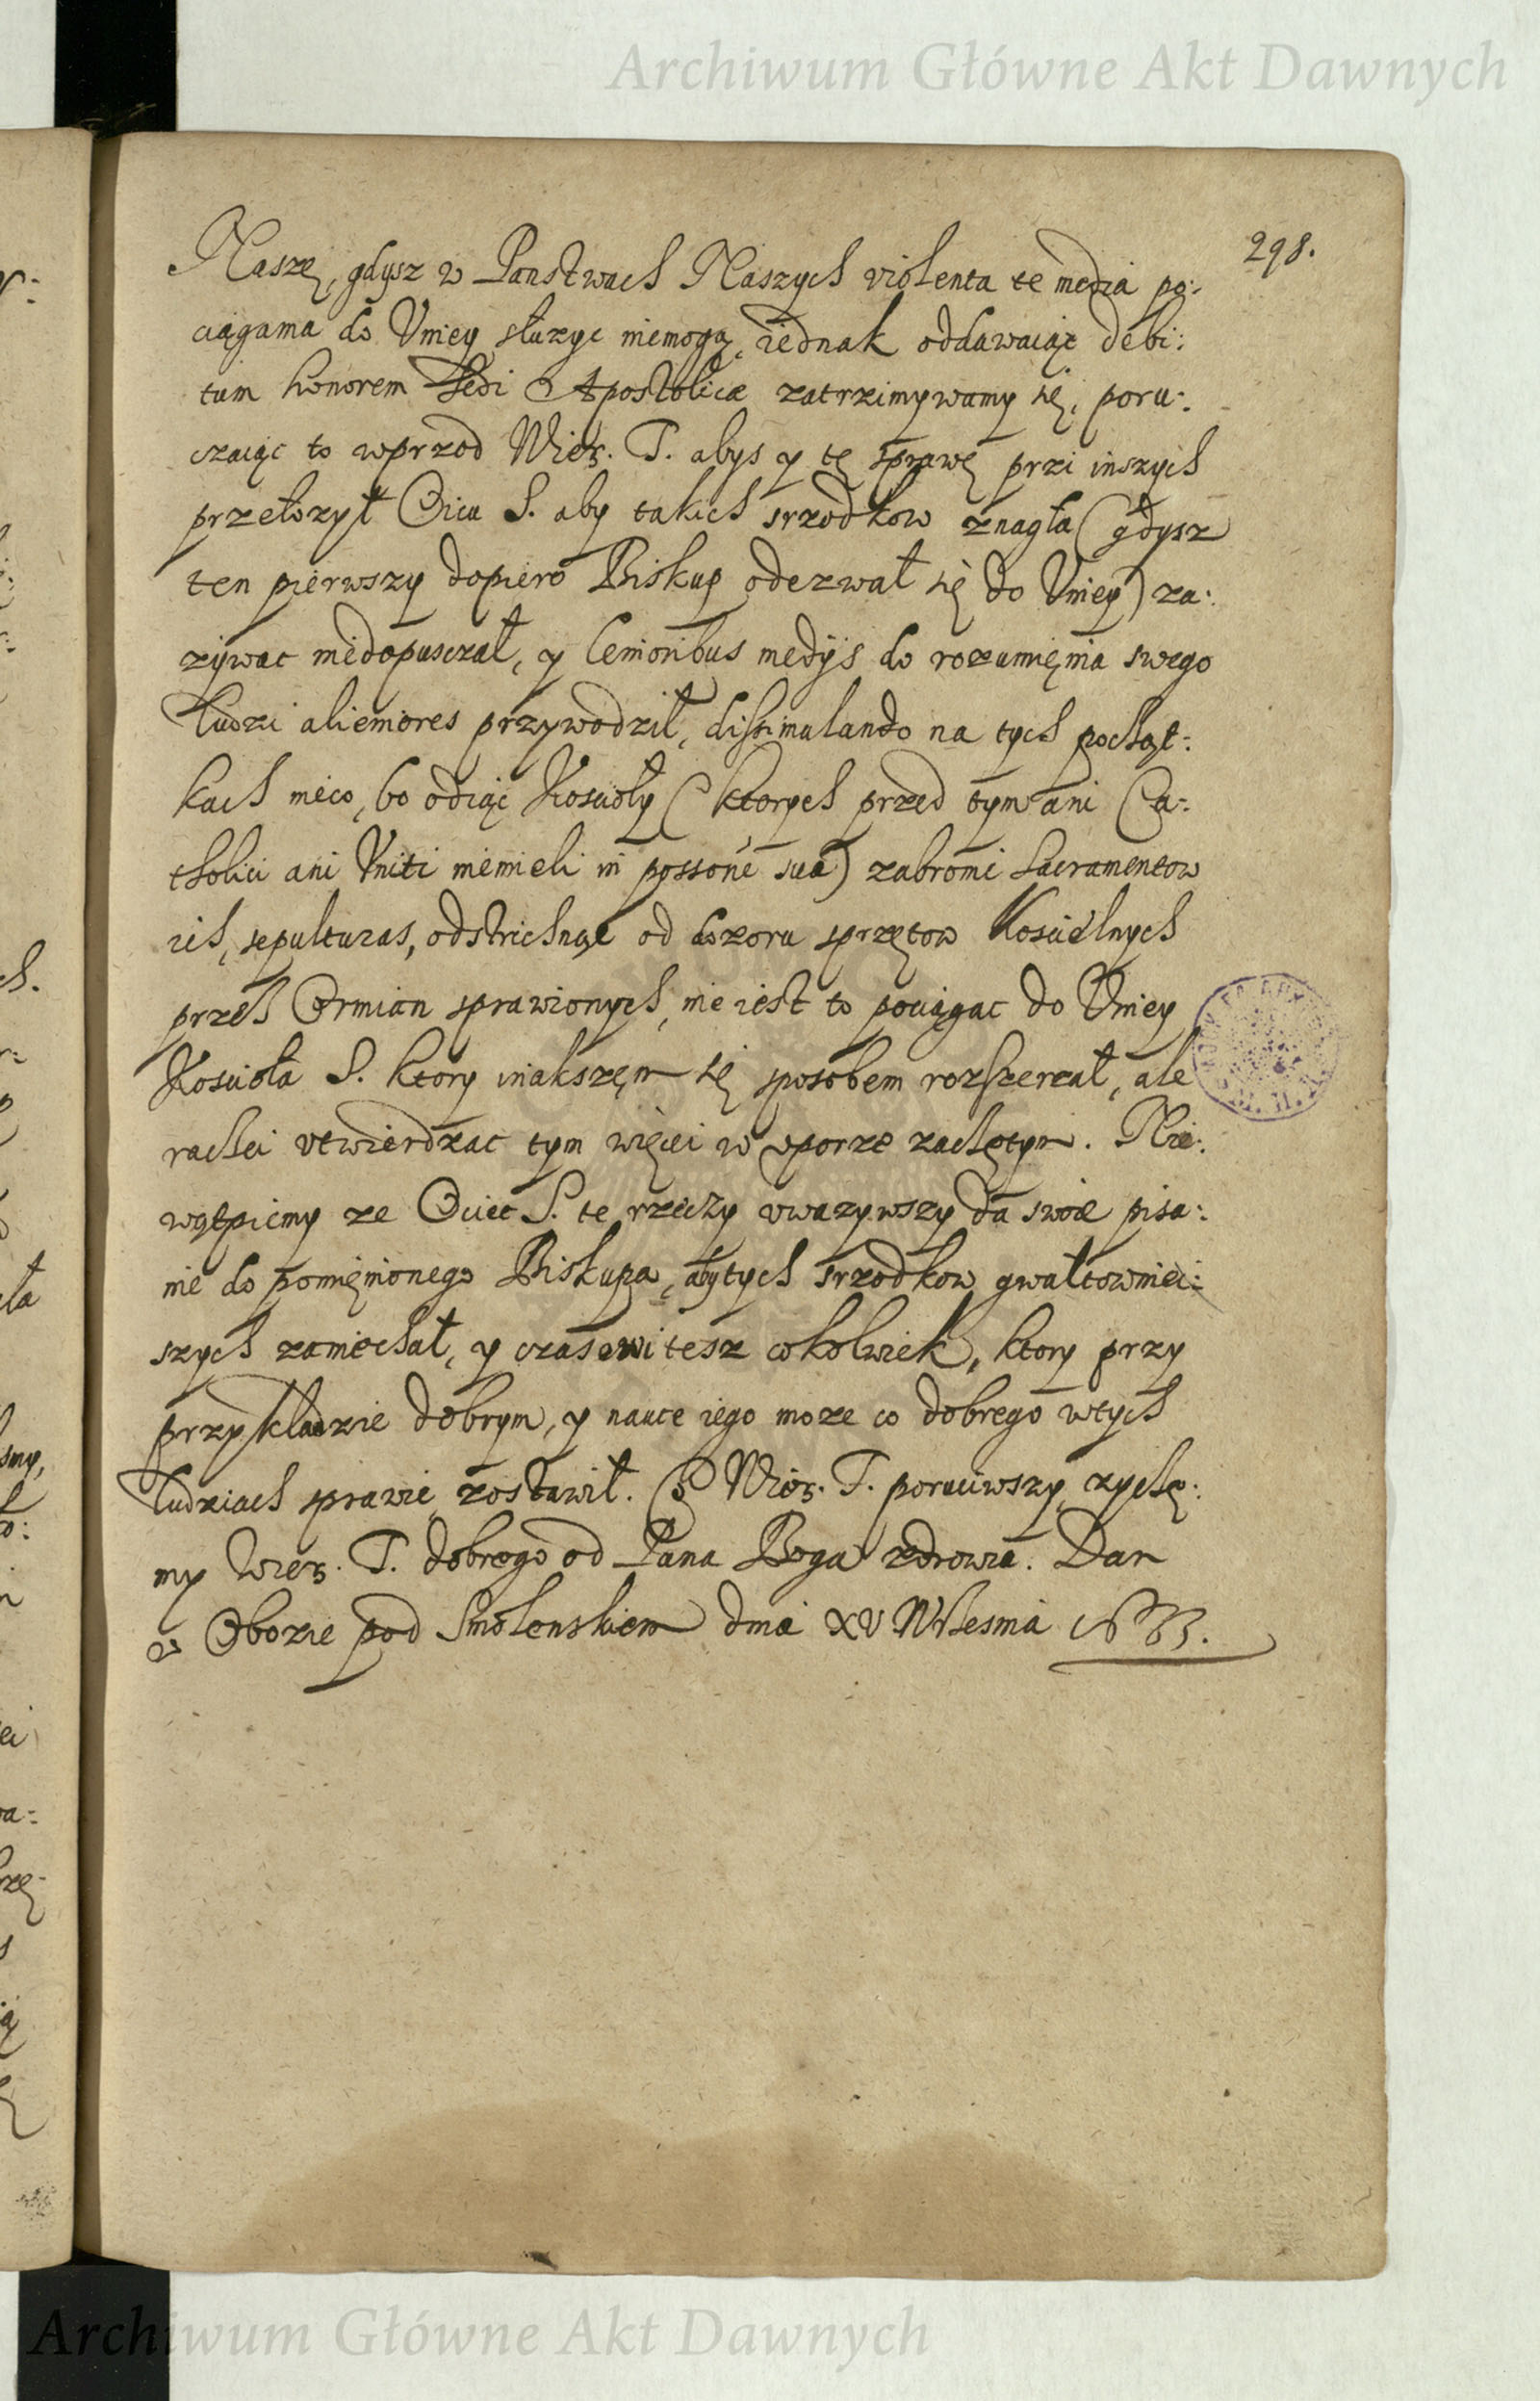 Archiwum Główne Akt Dawnych
298.
Naszę, gdysz w Panstwach Naszych violenta te media po:
ciągania do Vniey słuzyc niemogą, iednak oddawaiąc debi:
tum honorem Sedi Apostolicæ zatrzimywamy się, poru:
czaiąc to wprzod Wier. T. abys y tę sprawę przi inszych
przełozył Oicu S. aby takich srzodkow znagła (gdysz
ten pierwszy dopiero Biskup odezwał się do Vniey) za:
zywac niedopusczał, y lenioribus medijs do rozumięnia swego
ludzi alieniores przywodził, dissimulando na tych począt:
kach nieco, bo odiąc Koscioły (ktorych przed tym ani Ca:
tholici ani Vniti niemieli in possone sua) zabronic Sacramentow
ich, sepulturas, odstrichnąc od dozoru sprzętow Koscielnych
przes Ormian sprawionych, nie iest to pociągac do Vniey
Koscioła S. ktory inakszęm się sposobem rozszerzał, ale
raczei vtwierdzac tym więcei w vporze zaczętym. Nie:
wątpiemy ze Ociec S. te rzeczy vwazywszy da swoie pisa:
nie do pomięnionego Biskupa, aby tych srzodkow gwałtowniei:
szych zaniechał, y czasowi tesz cokolwiek, ktory przy
przykładzie dobrym, y nauce iego moze co dobrego wtych
ludziach sprawic zostawił. Wier. T. poruciwszy zyczę:
my Wier. T. dobrego od Pana Boga zdrowia. Dan
w Obozie pod Smolenskiem dnia XV Wrzesnia
Archiwum Główne Akt Dawnych